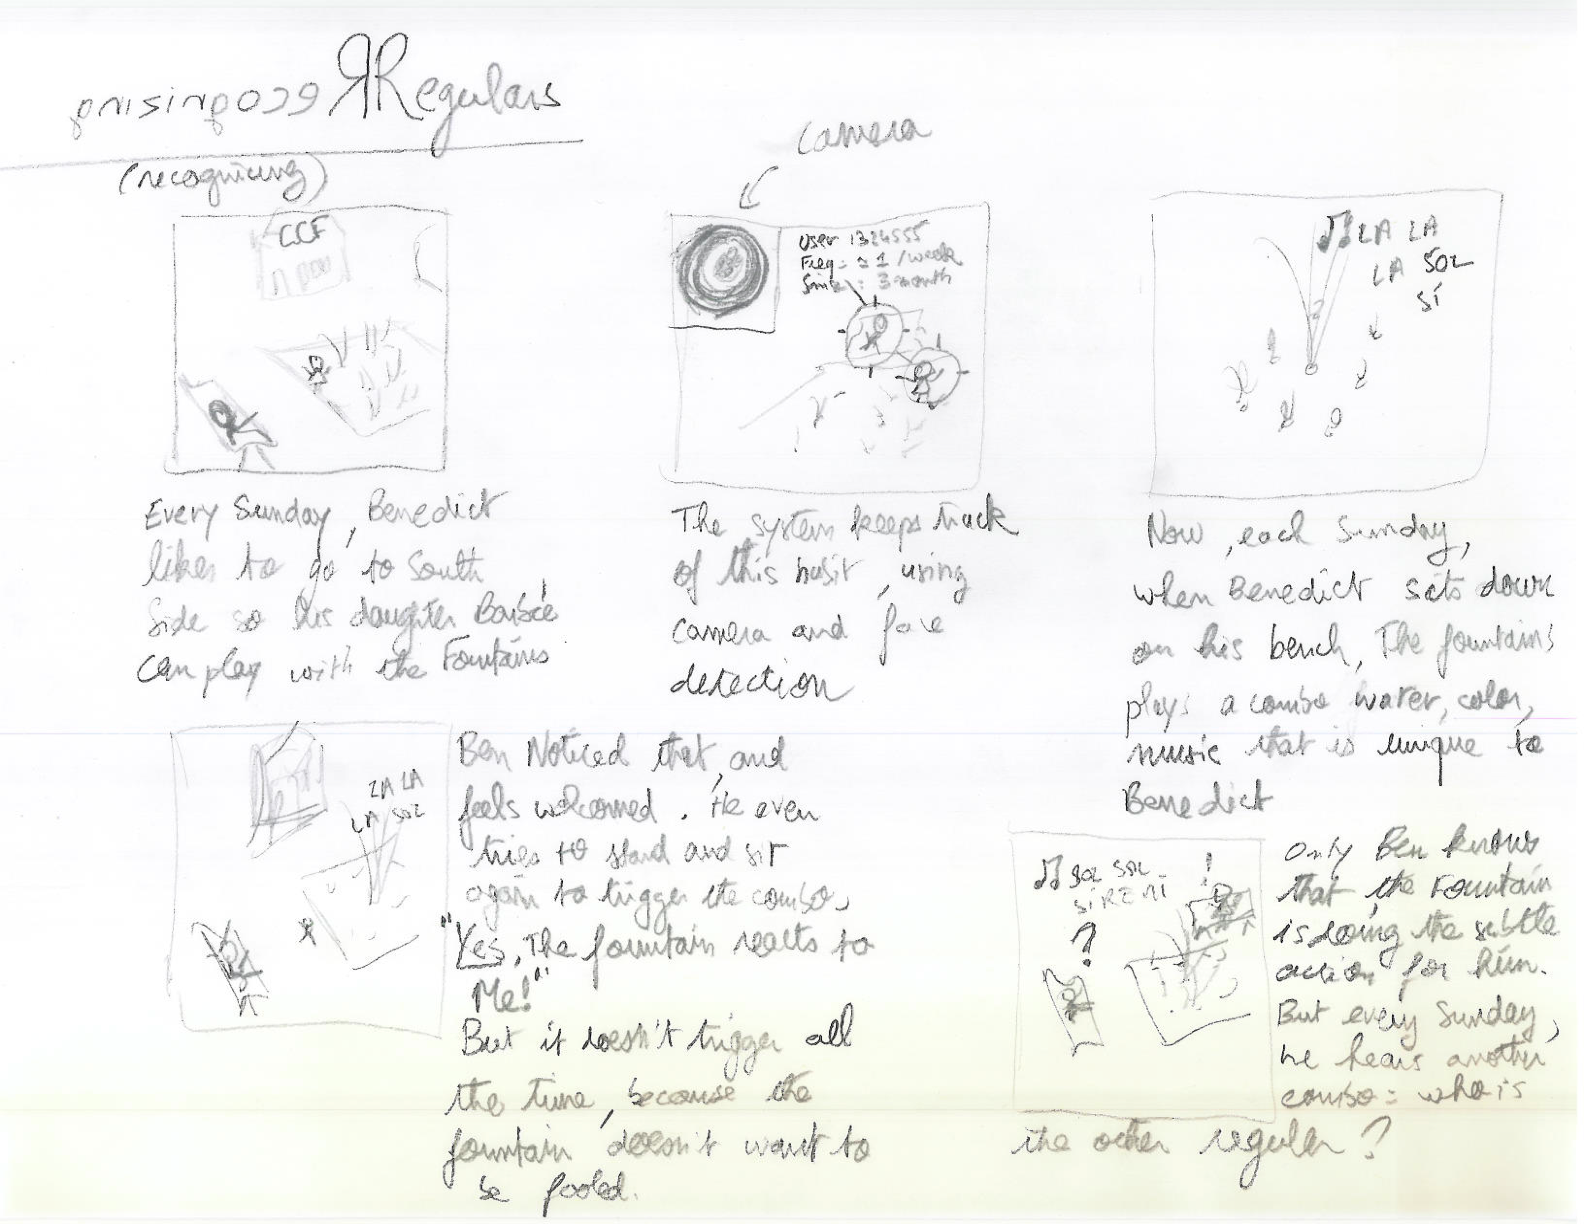 Recognising Regulars
(recognicing)
CCF
Every Sunday, Benedict
likes to go to South
Side so his daughter
can play with the Fountains
Camera
User 1324555
Freq = ≃ 1 / week
: 3 month
The system keeps track
of this habit, using
camera and face
detection
LA LA
LA SOL
SI
Now, each Sunday,
when Benedict sits down
on his bench, The fountains
plays a combo water, color,
music that is unique to
Benedict
LA LA
LA SOL
Ben Noticed that, and
feels welcomed. He even
tries to stand and sit
again to trigger the combo,
"Yes, The fountain reacts to
Me!"
But it doesn't trigger all
the time, because the
fountain doesn't want to
be fooled.
SOL SOL !
SI RE MI
?
Only Ben knows
that, the Fountain
is doing the subtle
action for him.
But every Sunday,
he hears another
combo: who is
the other regular?